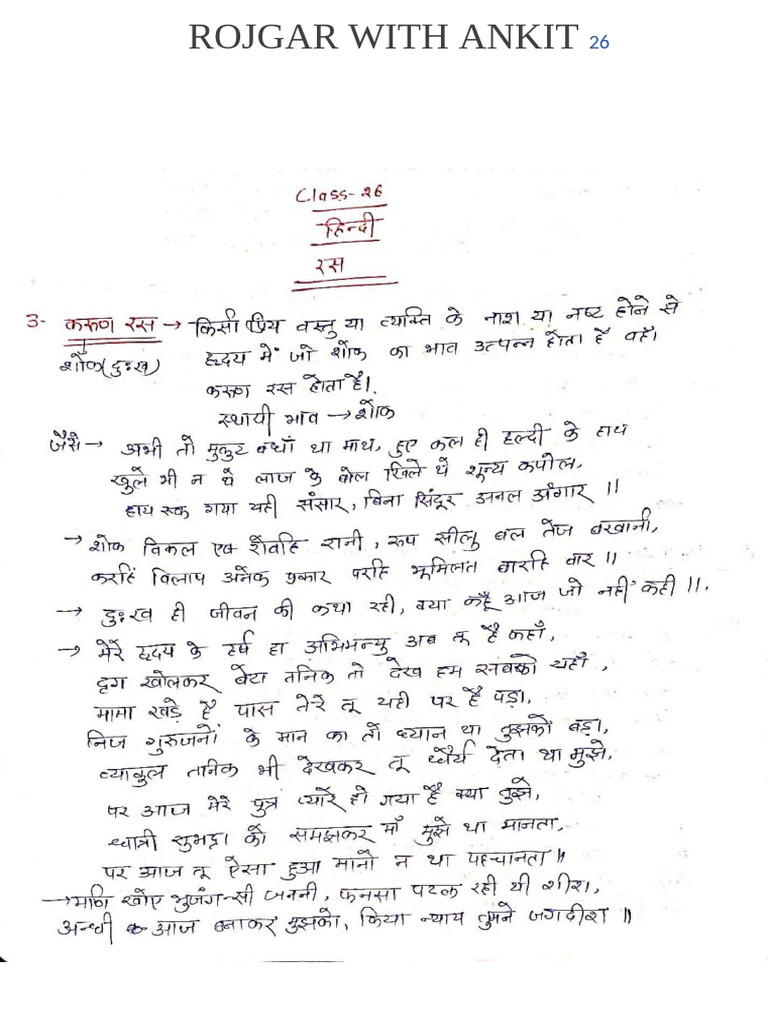 ROJGAR WITH ANKIT 26
Class-26
हिन्दी
रस
3- करुण रस → किसी प्रिय वस्तु या व्यक्ति के नाश या नष्ट होने से
शोक(दुःख) हृदय में जो शोक का भाव उत्पन्न होता है वहाँ
करुण रस होता है।
स्थायी भाव → शोक
जैसे → अभी तो मुकुट बधाँ था माथ, हुए कल ही हल्दी के हाथ
खुले भी न थे लाज के बोल खिले थे शून्य कपोल,
हाय रुक गया यही संसार, बिना सिंदूर अनल अंगार ||
→ शोक विकल एब रोवहि रानी, रूप सीलु बल तेज बखानी,
करहिं विलाप अनेक प्रकार परहि भूमितल बारहि बार ||
→ दुःख ही जीवन की कथा रही, क्या कहूँ आज जो नहीं कही ||.
→ मेरे हृदय के हर्ष हा अभिमन्यु अब तू है कहाँ,
दृग खोलकर बेटा तनिक तो देख हम सबको यहाँ,
मामा खड़े है पास तेरे तू यही पर है पड़ा,
निज गुरुजनों के मान का तो ध्यान था तुझको बड़ा,
व्याकुल तनिक भी देखकर तू धैर्य देता था मुझे,
पर आज मेरे पुत्र प्यारे हो गया है क्या तुझे,
धात्री सुभद्रा को समझकर माँ मुझे था मानता,
पर आज तू ऐसा हुआ मानो न था पहचानता ||
→ मणि खोए भुजंग-सी जननी, फनसा पटक रही थी शीश,
अन्धी आज बनाकर मुझको, किया न्याय तुमने जगदीश ||